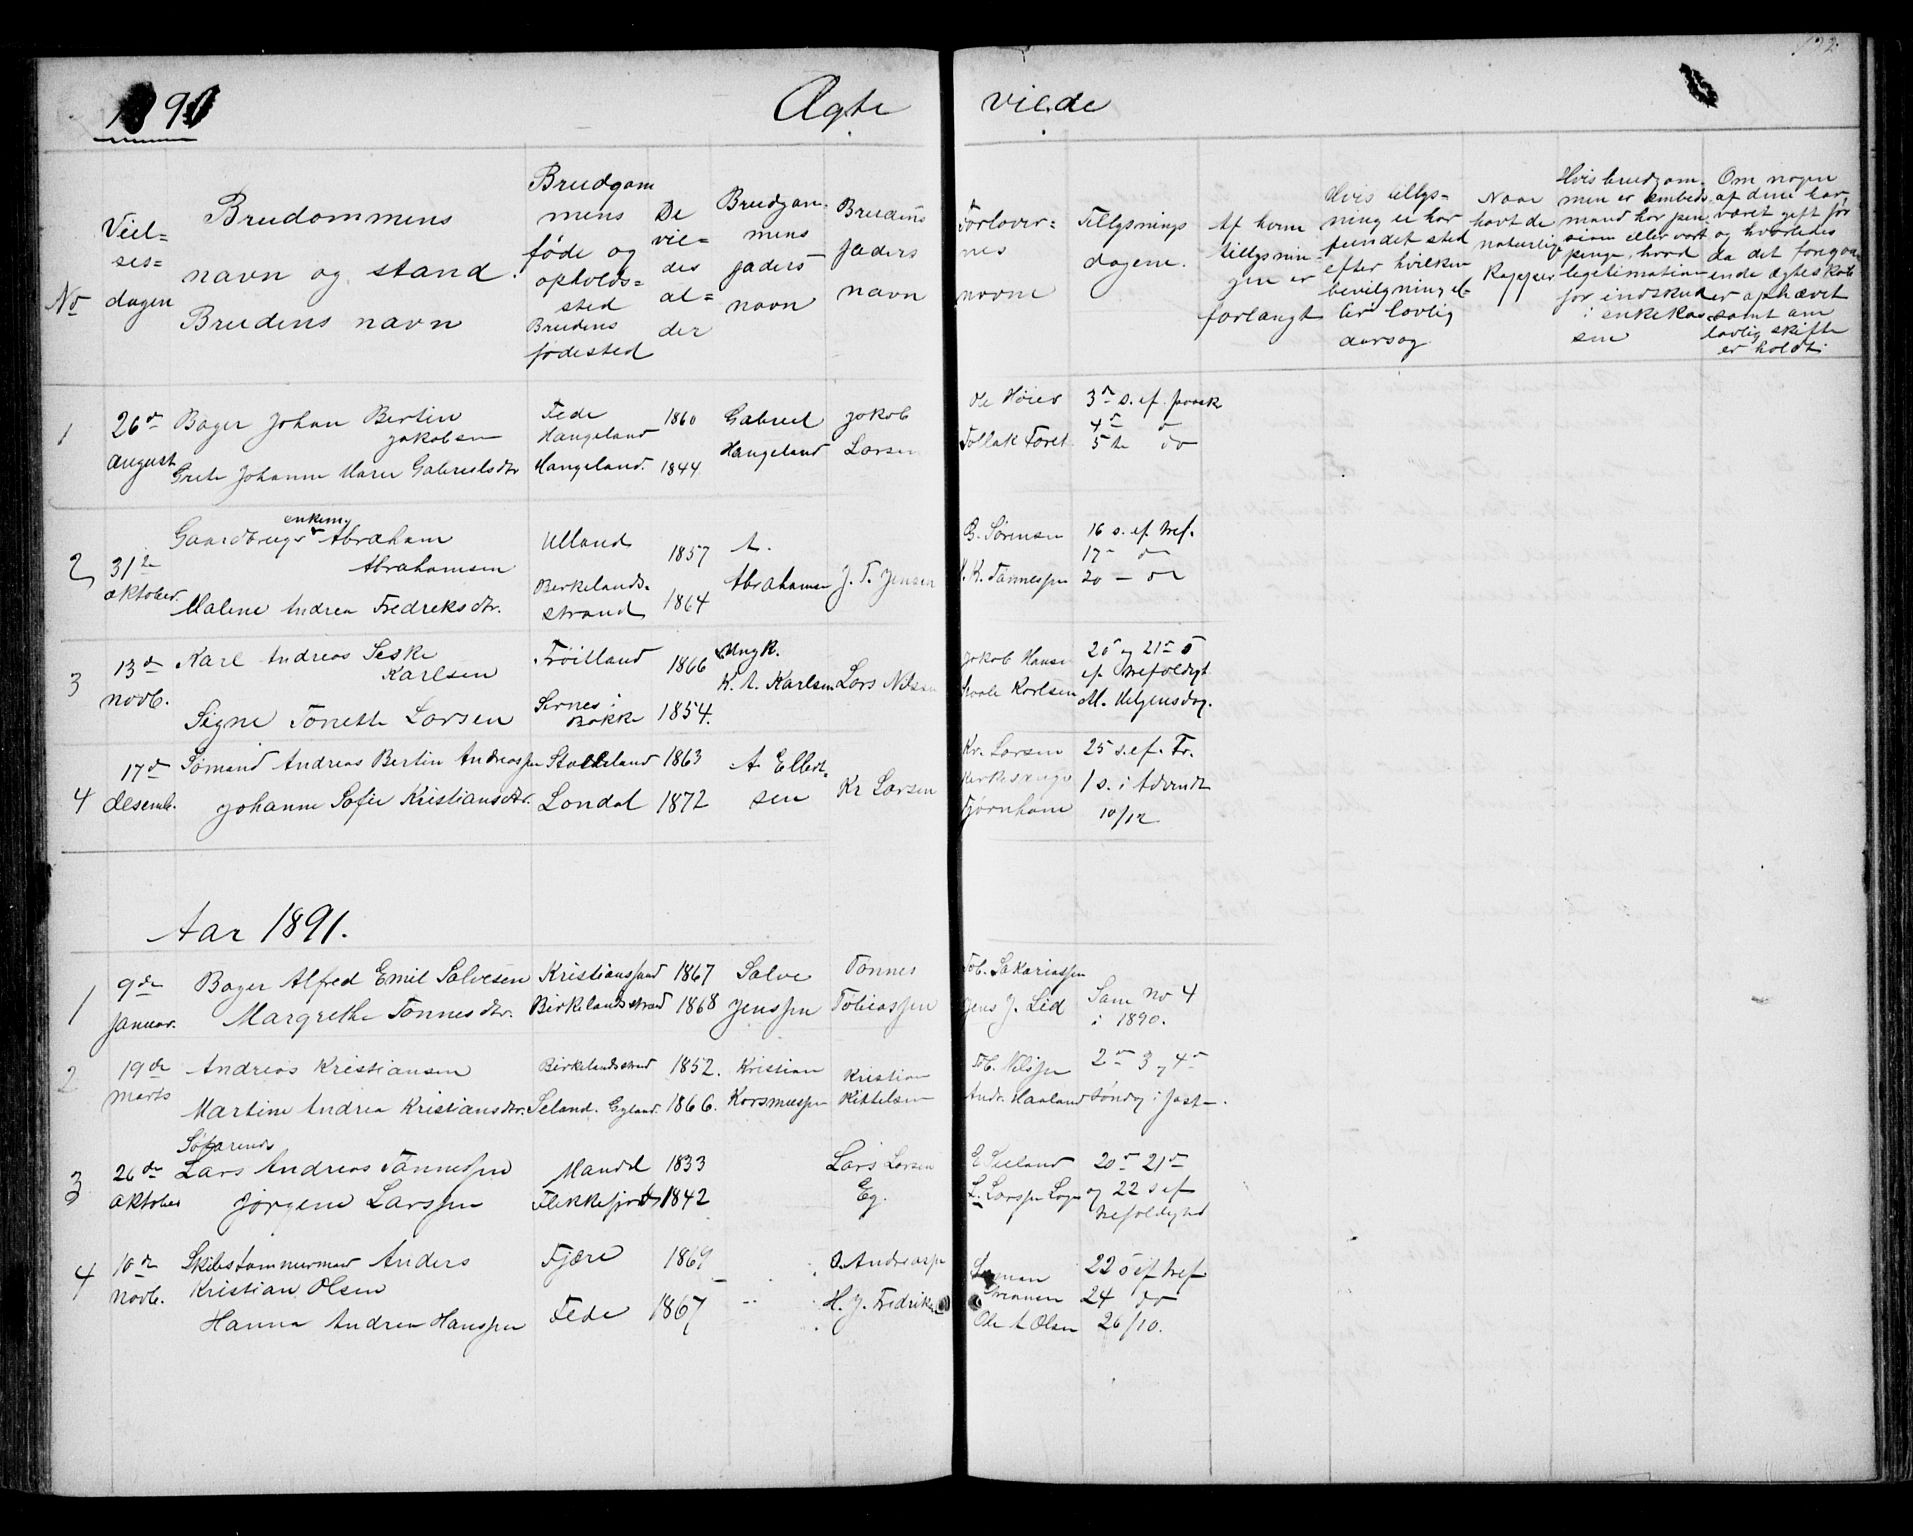 1890
Ægte viede
122
No
Viel=
ses=
dagen
Brudommens
navn og stand.
Brudens navn
Brudgom
mens
føde og
opholds=
sted
Brudens
fødested
De
vie=
des
al=
der
Brudgom-
mens
faders
navn
Brudens
faders
navn
Forlover=
nes
navne
Tillysnings
dagene.
Af hvem
tillysnin-
gen er
forlangt
Hvis tillys-
ning ei har
fundet sted
efter hvilken
bevilgning el-
ler lovlig
aarsag.
Naar
havt de
naturlige
Kopper
Hvis brudgom-
men er embeds
mand har pen
sion eller vart
penge, hvad
legitimation
for indskud
i enkekas-
sen
Om nogen
af dem har
været gift før
og hvorledes
da det foregaa
ende ægteskab
er ophævet
samt om
lovlig skifte
er holdt.
1
26de
august
Bager Johan Bertin
Jakobsen
Grete Johanne Marie Gabrielsdtr
Fede
Hangeland
Hangeland.
1860
1844
Gabriel
Hangeland
Jakob
Larsen
Ole Høier
Tollak Foret
3de s. ef. paask
4de do
5te do
2
31te
oktober.
enkem.
Gaardbruger Abraham
Abrahamsen
Malene Andrea Fredriksdtr.
Ulland
Birkelands-
strand
1857
1864
A.
Abrahamsen
J. T. Jensen
B. Sørensen
K. Tønnessen
16 s. ef. tref.
17 - do
20 - do
3
13de
novb.
Karl Andreas Seske
Karlsen
Signe Tonette Larsen
Frøilland
Sirnes i
Bakke
1866
1854.
Ungk.
K. A. Karlsen
Lars Nilsen
Jakob Hansen
Karlsen
20de og 21de s
ef. trefoldigt
Al. Helgensdag.
4
17de
desemb.
Sømand Andreas Bertin Andreassen
Johanne Sofie Kristiansdtr.
Stolleland
Londal
1863
1872
A Ellert-
sen
Kr Larsen
Kr. Larsen
Kirkesanger
Tjørnhom
25 s. ef. Tr.
1 s. i Advendt
10/12
Aar 1891.
1
9de
januar.
Bager Alfred Emil Salvesen
Margrethe Tønnesdtr.
Kristianssand
Birkelandsstrand
1867
1868
Salve
Jenssen
Tønnes
Tobiassen
Tob. Sakariassen
Jens J. Lid
Sam no 4
i 1890.
2
19de
marts
Andreas Kristiansen
Martine Andrea Kristiansdtr.
Birkelandsstrand
Seland. Gyland.
1852.
1866.
Kristian
Korsmussen
Kristian
Kittelsen
Tob. Nilssen
Andr. Haaland
2den 3 og 4de
søndag i fast-
3
26de
oktober
Søfarende
Lars Andreas Tønnessen
Jørgine Larssen
Mandal
Flekkefjord
1833
1842
Lars Larsen
Eg.
E Seeland
L. Larssen Loga
20de 21de
og 22 s ef
trefoldighed
4
10de
novb.
Skibstømmermand Anders
Kristian Olsen
Hanna Andrea Hanssen
Fjære
Fede
1869
1867
O. Andreassen
H. J. Fredriksen
Ole A Olsen
22 s ef tref
24 do
26/10.